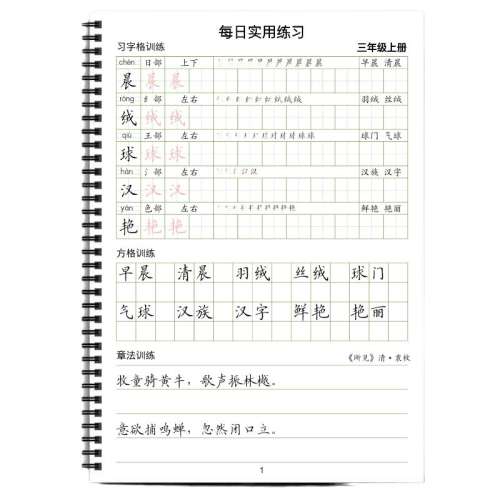 每日实用练习
习字格训练 三年级上册
chén 日部 上下 早晨 清晨
晨 晨 晨
róng 纟部 左右 羽绒 丝绒
绒 绒 绒
qiú 王部 左右 球门 气球
球 球 球
hàn 氵部 左右 汉族 汉字
汉 汉 汉
yàn 色部 左右 鲜艳 艳丽
艳 艳 艳
方格训练
早晨 清晨 羽绒 丝绒 球门
气球 汉族 汉字 鲜艳 艳丽
章法训练 《所见》清·袁枚
牧童骑黄牛，歌声振林樾。
意欲捕鸣蝉，忽然闭口立。
1